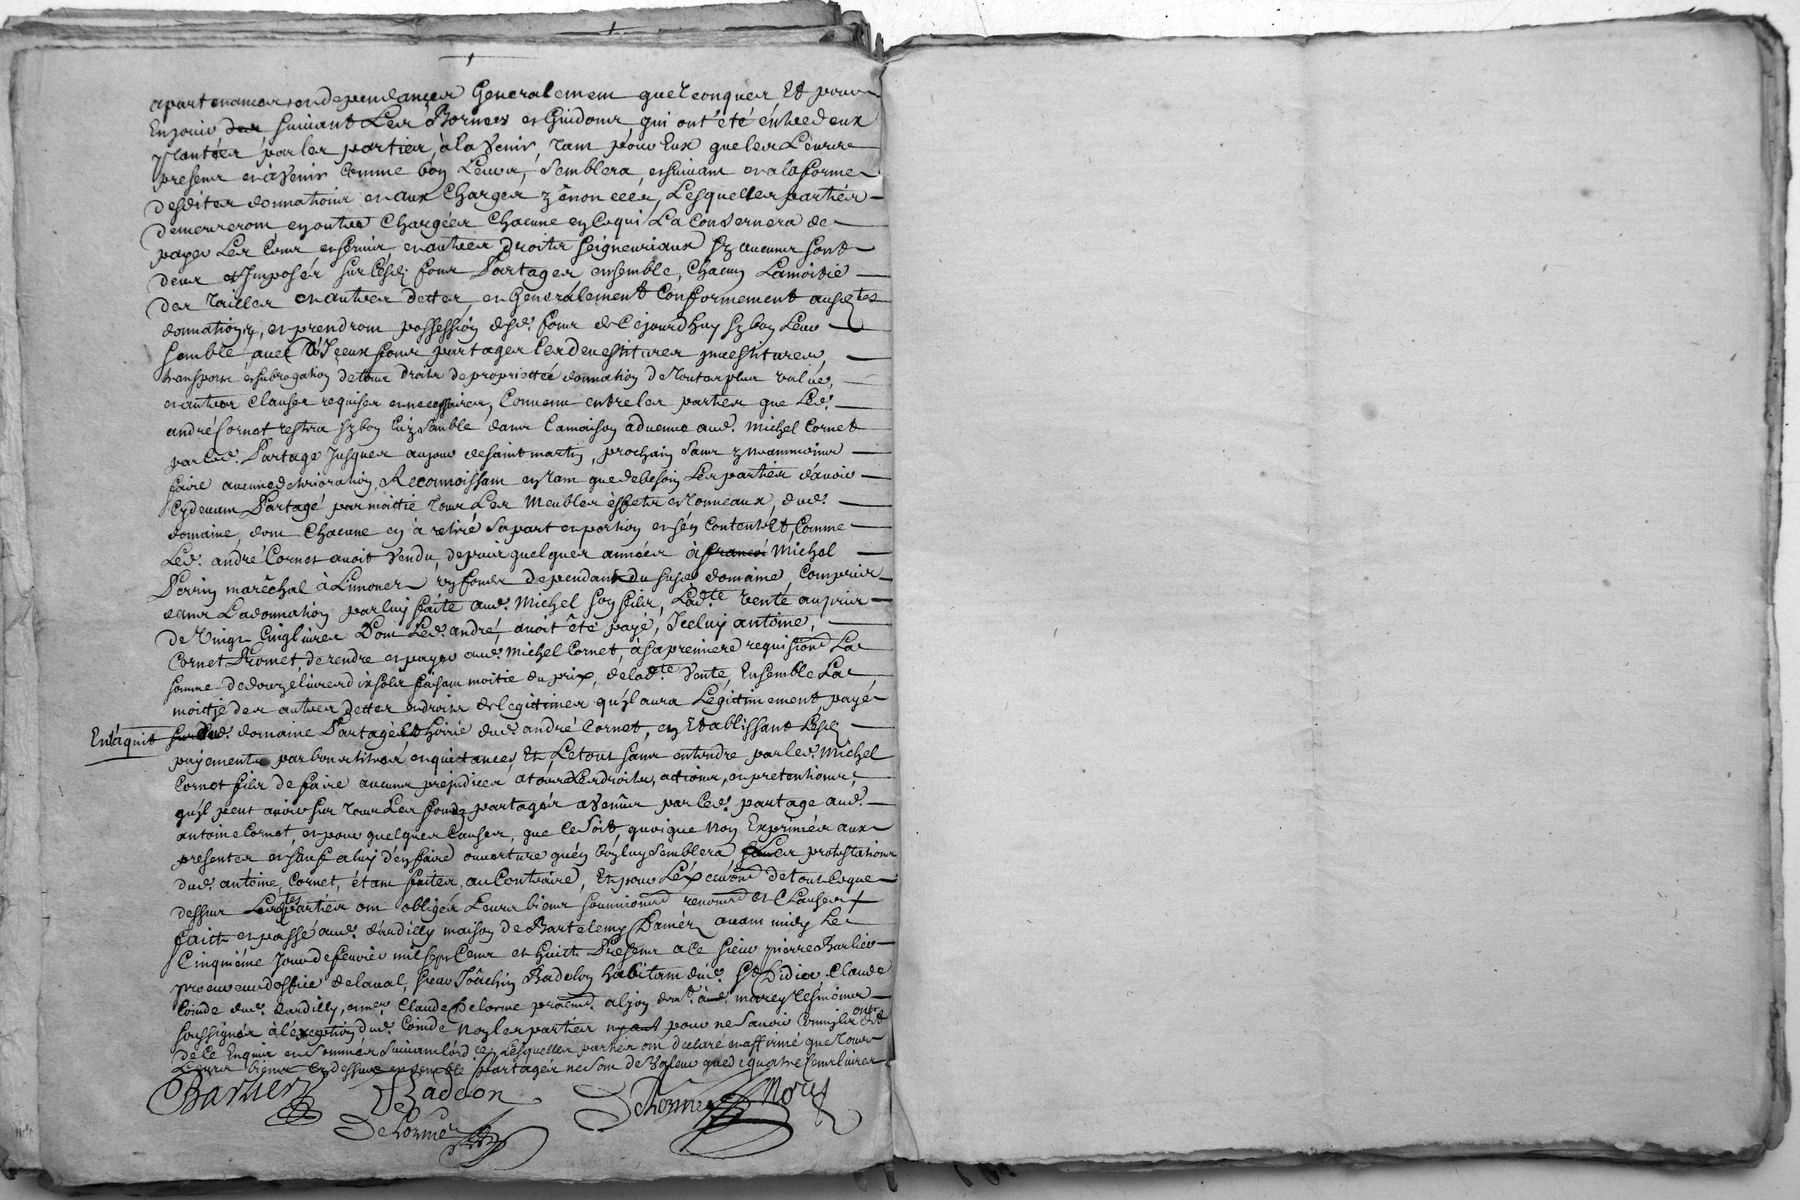 apartenances et dependances Generalement quelconques Et pour
En jouir des suivant Les Bornes et Guidons qui ont été entre deux
plantées par les parties, à la venir, tant pour Eux que les Leurs
present et à venir comme bon Leurs, semblera, ensuivant en la forme
desdites donnations et aux Charges y énoncéés, Lesquelles parties
demeureront en outre Chargées Chacune en Ce qui La Consernera de
payer Les Cens et servis et autres droits seigneuriaux sy aucuns sont
deux et Imposés sur lesd: fons Partager ensemble, Chacun Lamoitié
des Tailles et autres dettes, et Generalement Conformement ausd.tes
donnations, et prendront possession desd. fons de Cejourdhuy sy bon Leur
semble avec d'Iceux fons partagés les devestitures investitures,
transport et subrogation de tous droits de proprietté donnation de toutes plus value,
et autres Clauses requises et necessaires, Convenu entre les parties que Led.
andré Cornet restera sy bon luy semble dans lamaison advenue aud. Michel Cornet
par led. Partage Jusques au jour de saint martin, prochain sans y neammoins
faire aucune detrioration, Reconnoissant en tant que de besoin Les parties d'avoir
Cy devant Partagé par moitié tous Les Meubles effets et tonneaux, dud.
domaine, dont Chacune en à retiré sa part et portion et s'en contente Et, Comme
Led. andré Cornet avoit Vendu, depuis quelques années à francoi Michel
Perrin marêchal à Limonet un fonds dependant du susd. domaine, Compris
dans Ladonnation par luy faite aud. Michel son fils, Lad.te vente au prix
de Vingt Cinq livres Dont Led. andré, avoit été payé, Iceluy antoine,
Cornet Promet, de rendre et payer aud. Michel Cornet, à sa premiere requision La
somme de douze livres dix sols faisant moitie du prix, de lad.te Vente, Ensemble La
moitje des autres dettes et droits de legitimes qu'il aura Légitimement, payé
En l'aquit sur Led. domaine Partagé et hoirie dud. andré Cornet, en Etablissant Lesd.
payements par bons titres et quitances, Et, Le tout sans entendre par led. Michel
Cornet fils de faire aucuns prejudices a tous Les droits, actions, et pretentions,
qu'il peut avoir sur tous Les fonds partagés avenus par led. partage aud.
antoine Cornet et pour quelques Causes, que ce soit, quoique Non Exprimés aux
presentes et sauf a luy d'en faire ouverture quen bon luy semblera sauf Les protestations
dud. antoine, Cornet, étant faites, au Contraire, Et pour L'éxecution de tout Ceque
dessus Lesd.tes parties ont obligés Leurs biens soumissions renoncé et Clauses
faict et passé aud. dardilly maison de Bartelemy Damér avant midy Le
Cinquiéme Jour de fevrier mil sept Cens et huict Presents a ce sieur pierre Barlier
procureur d'office de laval, sieur Joâchin Badolon habitant dud. St Didier Claude
Coinde dud. dardilly, et me. Claude Delorme praticn. a lyon dem.t aud. marcy tesmoins
soussignés à l'éxeption dud. Coinde Non les parties ny aut pour ne savoir Comm'ilz ont dit
de ce Enquis et sommés suivant l'ord.ce, Lesquelles parties ont declaré et affirmé que tous
Leurs biens Cy dessus ensemble partagés ne sont de Valeur que de quatre Cens livres
Barlier Badolon Delorme
Delorme